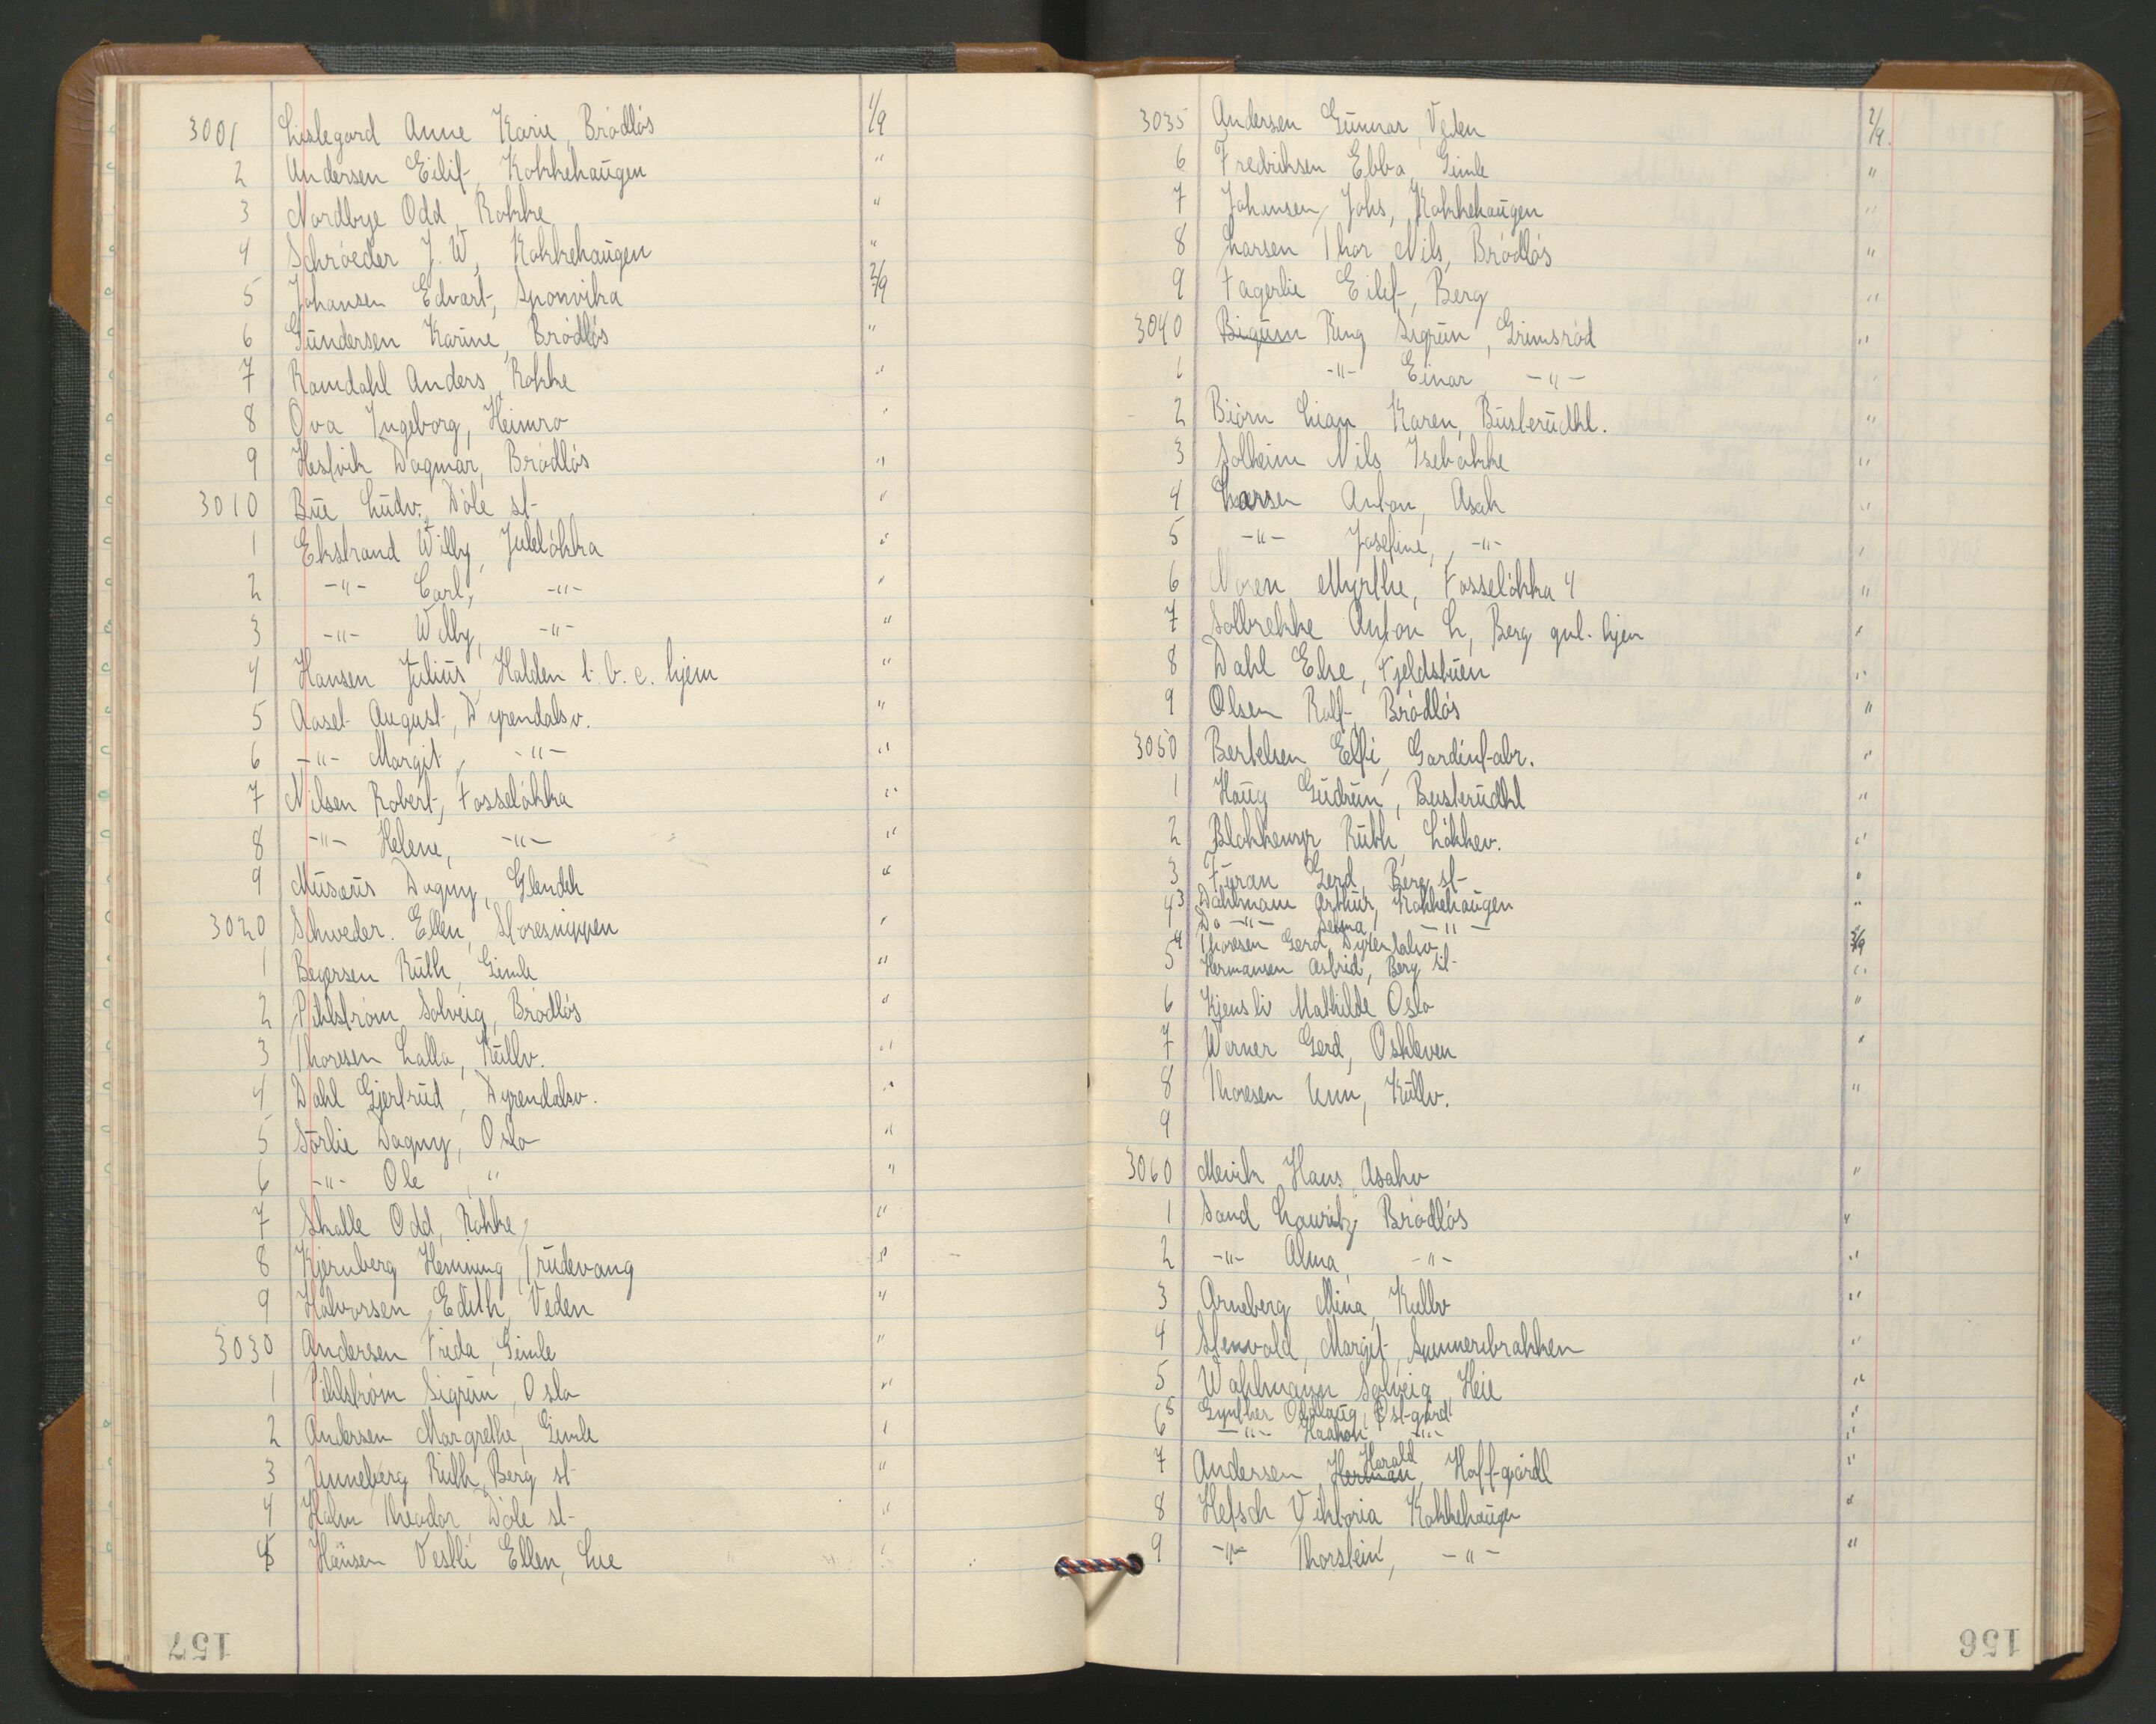 3001 Lislegard Anne Karie, Brödlös 1/9
2 Andersen Eilif, Kokkehaugen "
3 Nordbye Odd, Rokke "
4 Schröeder J. W, Kokkehaugen "
5 Johansen Edvart, Sponvika 2/9
6 Gundersen Karine, Brödlös "
7 Ramdahl Anders, Rokke "
8 Ova Ingeborg, Heimro "
9 Hesfvik Dagmar, Brödlös "
3010 Bue Ludv. Döle st- "
1 Ekstrand Willy, Julelökka "
2 -"- Carl, -"- "
3 -"- Willy, -"- "
4 Hansen Julius Halden t. b. c. hjem "
5 Aaset August, Dyrendalsv. "
6 -"- Margit, -"- "
7 Nilsen Robert, Fosselökka "
8 -"- Helene, -"- "
9 Musæus Dagny, "
3020 Schweder. Ellen, Storesnippen "
1 Ruth, Gimle "
2 Pihlström Solveig, Brödlös "
3 Thoresen Lalla, Kullv. "
4 Dahl Gjertrud, Dyrendalsv. "
5 Sörlie Dagny, Oslo "
6 -"- Ole, " "
7 Skalle Odd, Rokke, "
8 Kjernberg Henning, Trudevang "
9 Halvorsen, Edith, Veden "
3030 Andersen Frida, Gimle "
1 Pihlström Sigrun, Oslo "
2 Andersen Margrethe, Gimle "
3 Unneberg Ruth, Berg st- "
4 Holm Theodor, Döle st- "
5 Hansen Vestli Ellen, Lue "
157
3035 Andersen Gunnar, Veden 2/9.
6 Fredriksen Ebba, Gimle "
7 Johansen, Johs, Kokkehaugen "
8 Larsen Thor Nils, Brödlös "
9 Fagerlie Eilif, Berg "
3040 Bigum Ring Sigrun, Grimsröd "
1 -"- Einar -"- "
2 Björn Lian Karen, Busterudkl. "
3 Solheim Nils Isebakke "
4 Larsen Anton, Asak "
5 -"- Josefine, -"- "
6 Noren Myrthe, Fosselökka 4 "
7 Solbrekke Anton L, Berg gml. hjem "
8 Dahl Else, Fjeldstuen "
9 Olsen Rolf, Brödlös "
3050 Bertelsen Elfi, Gardinfabr. "
1 Haug Gudrun, Busterudkl "
2 Blakkemyr Ruth, Lökkev. "
3 Furan Gerd, Berg st- "
4 3 Dahlmann Arthur, Kokkehaugen "
Do -"- Selma, -"-
4 Thoresen Gerd, Dyrendalsv 3/9
5 Hermansen Astrid, Berg st- "
6 Kjensli Mathilde Oslo "
7 Werner Gerd, Oskleven "
8 Thoresen Unn, Kullv. "
9
3060 Mevik Hans, Asakv "
1 Sand Lauritz Brödlös "
2 -"- Alma, -"- "
3 Arneberg Mina, Kullv "
4 Stenvold, Margit, "
5 Wahlmann Solveig, Heie "
5 Gynther Oddlaug, Östgård "
6 -"- Haakon -"- "
7 Andersen Herman Harald, Hoffgårdl "
8 Hefsch Viktoria Kokkehaugen "
9 -"- Thorstein, -"- "
156